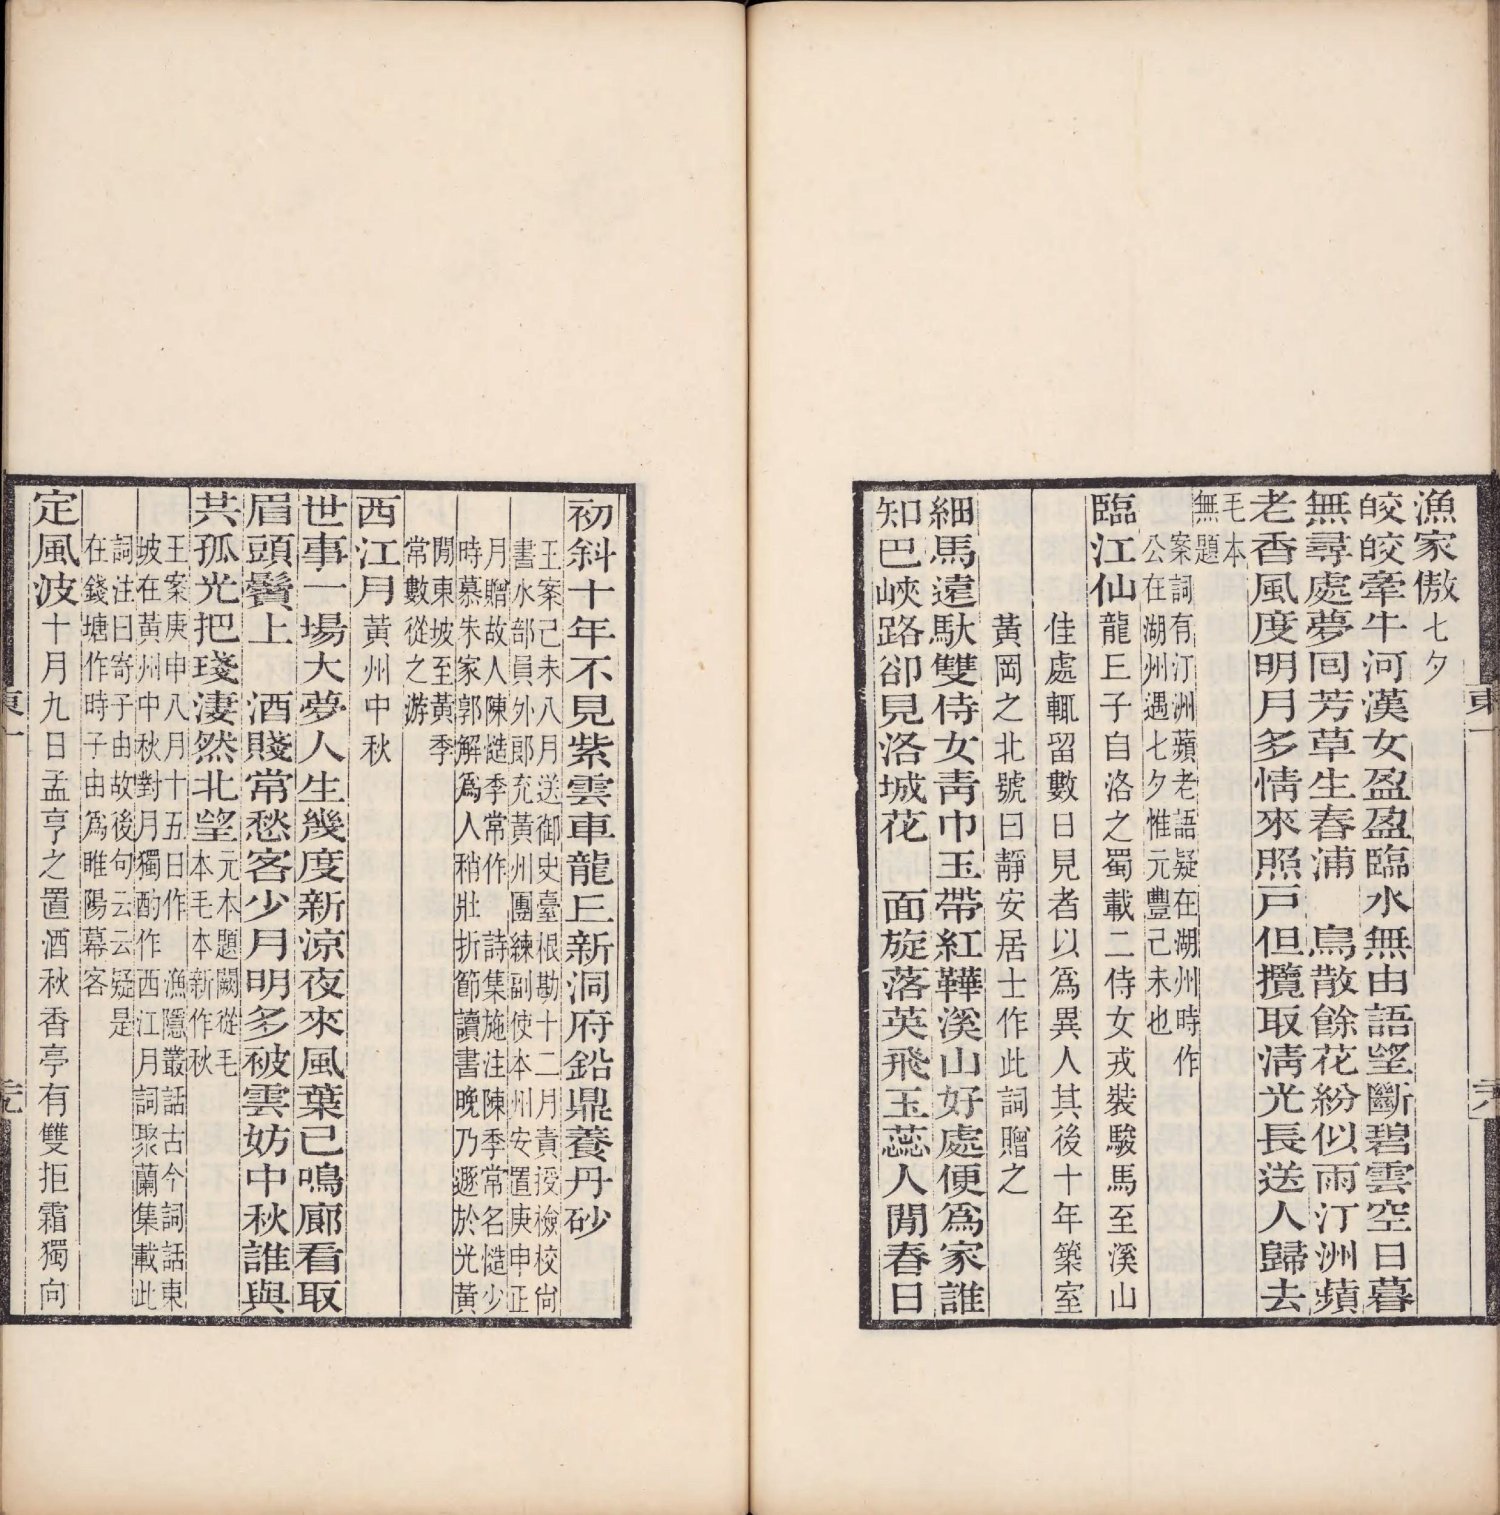 漁家傲七夕
皎皎牽牛河漢女盈盈臨水無由語望斷碧雲空日暮
無尋處夢囘芳草生春浦　鳥散餘花紛似雨汀洲蘋
老香風度明月多情來照戸但攬取淸光長送人歸去
毛本
無題
案詞有汀洲蘋老語疑在湖州時作
公在湖州遇七夕惟元豐己未也
臨江仙龍丘子自洛之蜀載二侍女戎裝駿馬至溪山
佳處輒留數日見者以爲異人其後十年築室
黃岡之北號曰靜安居士作此詞贈之
細馬遠馱雙侍女靑巾玉帶紅鞾溪山好處便爲家誰
知巴峽路卻見洛城花　面旋落英飛玉蕊人閒春日
東一
六
初斜十年不見紫雲車龍丘新洞府鉛鼎養丹砂
王案己未八月送御史臺根勘十二月責授檢校尙
書水部員外郞充黃州團練副使本州安置庚申正
月贈故人陳慥季常作　詩集施注陳季常名慥少
時慕朱家郭解爲人稍壯折節讀書晚乃遯於光黃
閒東坡至黃季
常數從之游
西江月黃州中秋
世事一場大夢人生幾度新涼夜來風葉已鳴廊看取
眉頭鬢上　酒賤常愁客少月明多被雲妨中秋誰與
共孤光把琖淒然北望元本題闕從毛
本毛本新作秋
王案庚申八月十五日作　漁隱叢話古今詞話東
坡在黃州中秋對月獨酌作西江月詞聚蘭集載此
詞注曰寄子由故後句云云疑是
在錢塘作時子由爲睢陽幕客
定風波十月九日孟亨之置酒秋香亭有雙拒霜獨向
東一